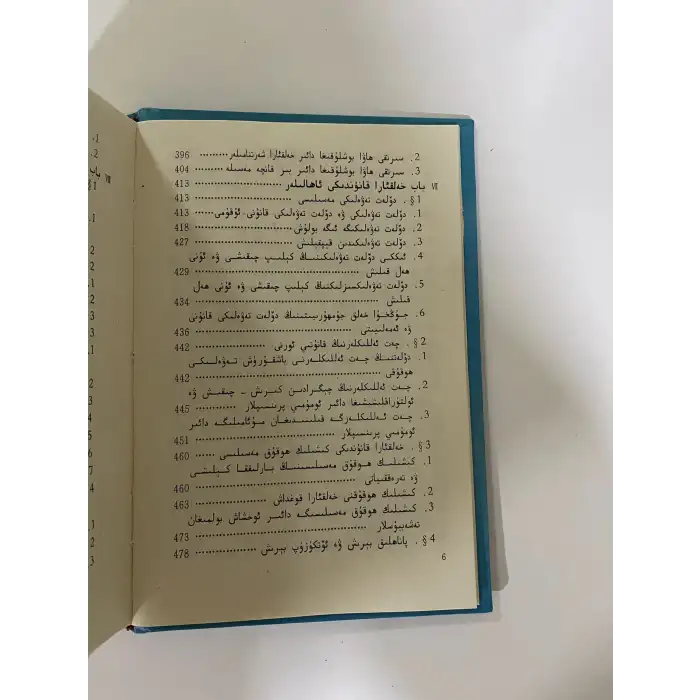 2. سىرتقى ھاۋا بوشلۇقىغا دائىر خەلقئارا شەرتنامىلەر ………… 396
3. سىرتقى ھاۋا بوشلۇقىغا دائىر بىر قانچە مەسىلە ………… 404
Ⅶ باب خەلقئارا قانۇندىكى ئاھالىلەر ………… 413
§ 1. دۆلەت تەۋەلىكى مەسىلىسى ………… 413
1. دۆلەت تەۋەلىكى ۋە دۆلەت تەۋەلىكى قانۇنى-ئۇقۇمى ………… 413
2. دۆلەت تەۋەلىكىگە ئىگە بولۇش ………… 418
3. دۆلەت تەۋەلىكىدىن قېپقېلىش ………… 427
4. ئىككى دۆلەت تەۋەلىكىنىڭ كېلىپ چىقىشى ۋە ئۇنى
ھەل قىلىش ………… 429
5. دۆلەت تەۋەلىكسىزلىكنىڭ كېلىپ چىقىشى ۋە ئۇنى ھەل
قىلىش ………… 434
6. جۇڭخۇا خەلق جۇمھۇرىيىتىنىڭ دۆلەت تەۋەلىكى قانۇنى
ۋە ئەمەلىيىتى ………… 436
§ 2. چەت ئەللىكلەرنىڭ قانۇنىي ئورنى ………… 442
1. دۆلەتنىڭ چەت ئەللىكلەرنى باشقۇرۇش تەۋەلىكى
ھوقۇقى ………… 442
2. چەت ئەللىكلەرنىڭ چېگرادىن كىرىش - چىقىش ۋە
ئولتۇراقلىشىشىغا دائىر ئومۇمىي پرىنسىپلار ………… 445
3. چەت ئەللىكلەرگە قىلىنىدىغان مۇئامىلىگە دائىر
ئومۇمىي پرىنسىپلار ………… 451
§ 3. خەلقئارا قانۇندىكى كىشىلىك ھوقۇق مەسىلىسى ………… 460
1. كىشىلىك ھوقۇق مەسىلىسىنىڭ بارلىققا كېلىشى
ۋە تەرەققىياتى ………… 460
2. كىشىلىك ھوقۇقنى خەلقئارا قوغداش ………… 463
3. كىشىلىك ھوقۇق مەسىلىسىگە دائىر ئوخشاش بولمىغان
تەشەببۇسلار ………… 473
§ 4. پاناھلىق بېرىش ۋە ئۆتكۈزۈپ بېرىش ………… 478
6